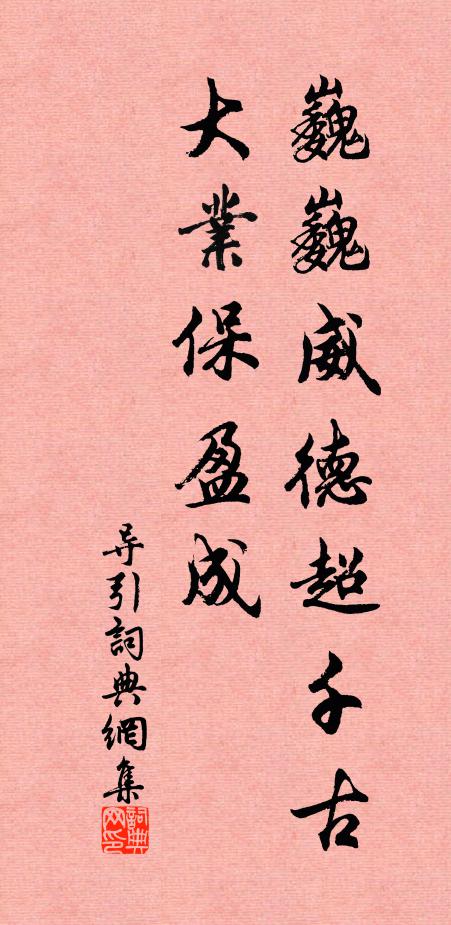 巍巍威德超千古
大業保盈成
导引詞典網集
詞典网印